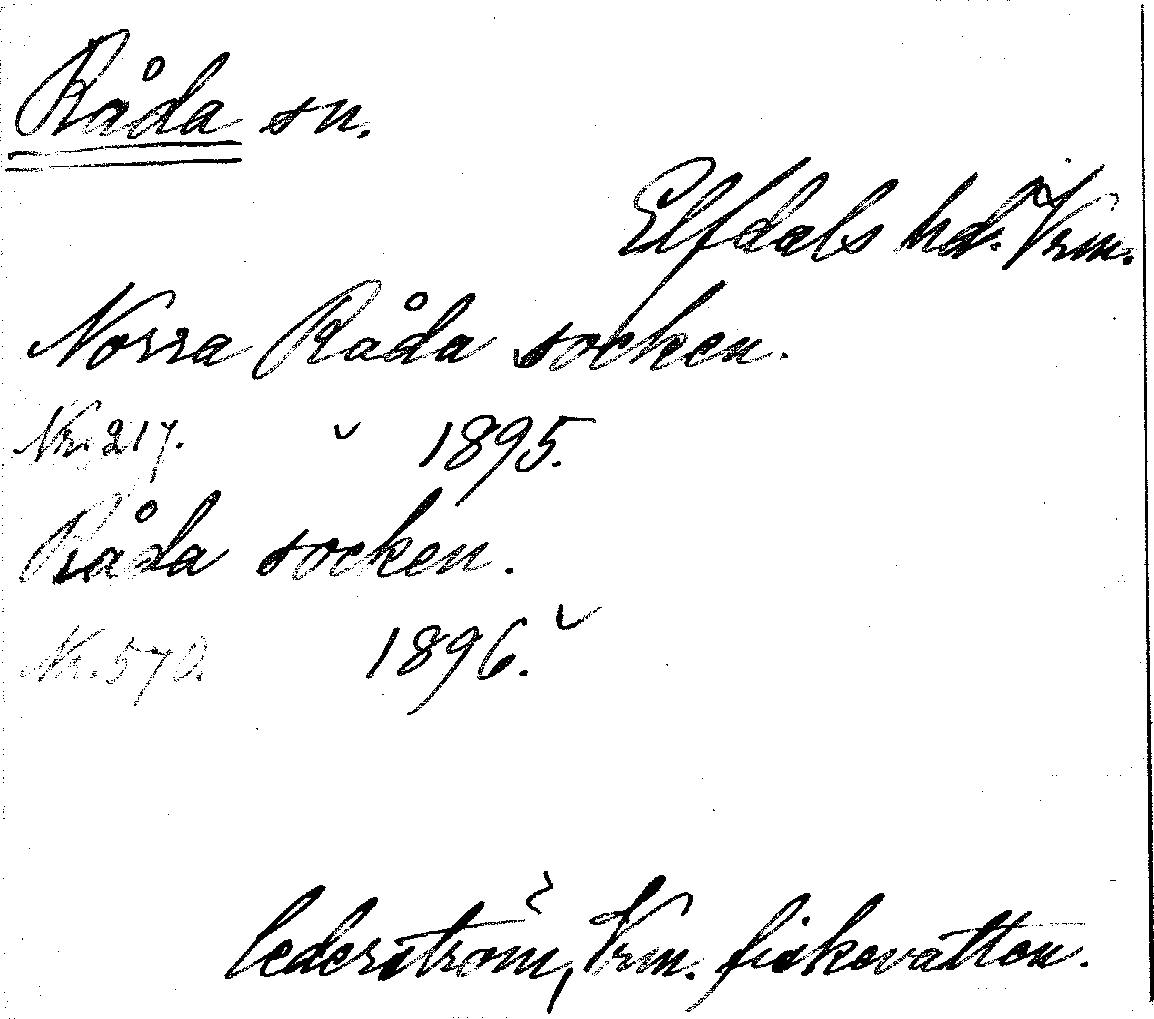 Råda sn.
Elfdals hd. Vrm.
Norra Råda socken.
Nr. 217. 1895.
Råda socken.
Nr. 570. 1896.
Cederström, Vrm. fiskevatten.